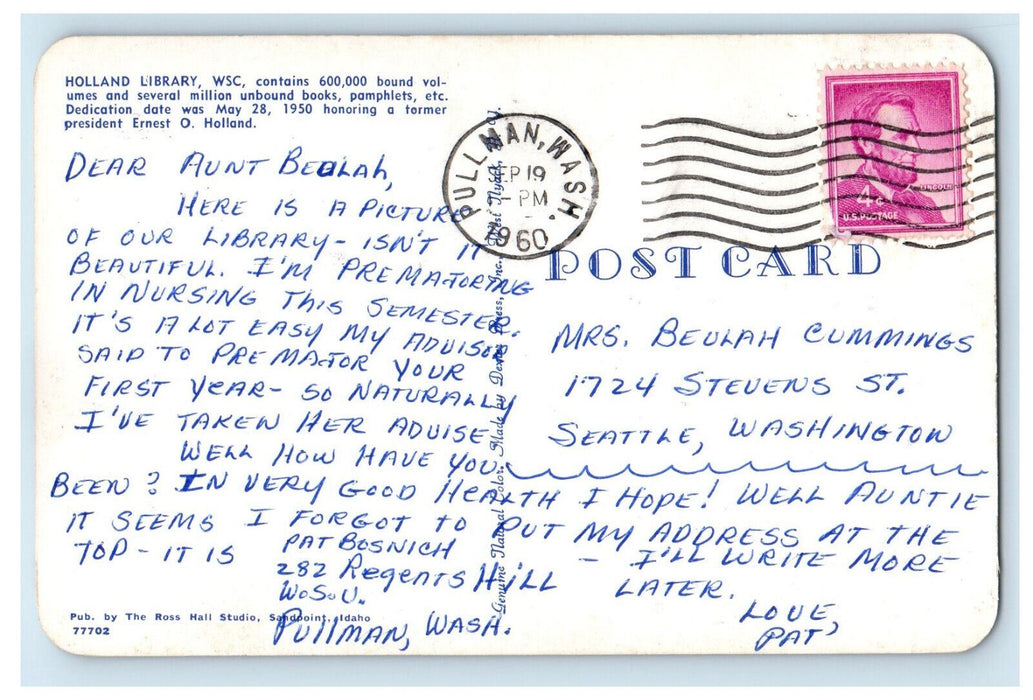 HOLLAND LIBRARY, WSC, contains 600,000 bound vol-
umes and several million unbound books, pamphlets, etc.
Dedication date was May 28, 1950 honoring a former
president Ernest O. Holland.
DEAR AUNT BEULAH,
HERE IS A PICTURE
OF OUR LIBRARY - ISN'T IT
BEAUTIFUL. I'M PREMAJORING
IN NURSING THIS SEMESTER.
IT'S A LOT EASY MY ADVISOR
SAID TO PREMAJOR YOUR
FIRST YEAR - SO NATURALLY
I'VE TAKEN HER ADVISE
WELL HOW HAVE YOU
BEEN? IN VERY GOOD HEALTH I HOPE! WELL AUNTIE
IT SEEMS I FORGOT TO PUT MY ADDRESS AT THE
TOP - IT IS
PAT BOSNICH
282 Regents HILL
W.S.U.
PULLMAN, WASH.
- I'LL WRITE MORE
LATER.
LOVE,
PAT
Pub. by The Ross Hall Studio, Sandpoint, Idaho
77702
Genuine Natural Color. Made by Dexter Press, Inc., West Nyack,
PULLMAN, WASH.
SEP 19
- PM
1960
LINCOLN
4¢
U.S. POSTAGE
POST CARD
MRS. BEULAH CUMMINGS
1724 STEVENS ST.
SEATTLE, WASHINGTON